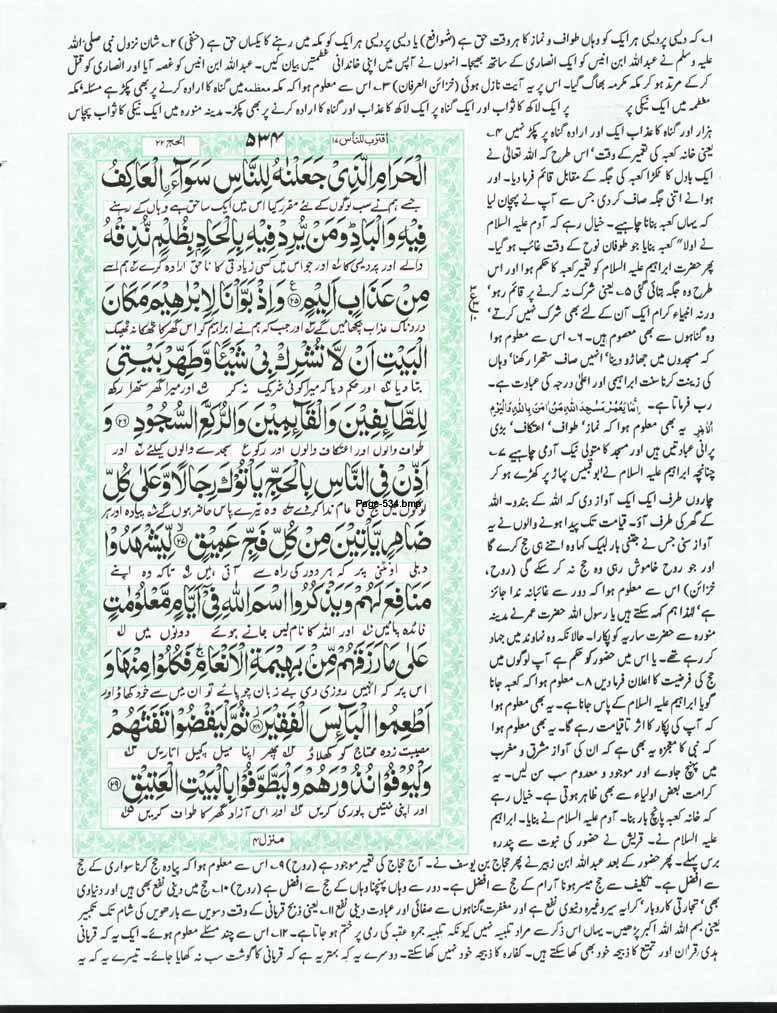 ۱۔ کہ دیسی پردیسی ہر ایک کو وہاں طواف و نماز کا ہر وقت حق ہے (شوافع) یا دیسی پردیسی ہر ایک کو مکہ میں رہنے کا یکساں حق ہے (حنفی) ۲۔ شان نزول نبی صلی اللہ
علیہ وسلم نے عبداللہ ابن انیس کو ایک انصاری کے ساتھ بھیجا۔ انہوں نے آپس میں اپنی خاندانی عظمتیں بیان کیں۔ عبداللہ ابن انیس کو غصہ آیا اور انصاری کو قتل
کر کے مرتد ہو کر مکہ مکرمہ بھاگ گیا۔ اس پر یہ آیت نازل ہوئی (خزائن العرفان) ۳۔ اس سے معلوم ہوا کہ مکہ معظمہ میں گناہ کا ارادہ کرنے پر بھی پکڑ ہے مسئلہ' مکہ
معظمہ میں ایک نیکی پر پر ایک لاکھ کا ثواب اور ایک گناہ پر ایک لاکھ کا عذاب اور گناہ کا ارادہ کرنے پر بھی پکڑ۔ مدینہ منورہ میں ایک نیکی کا ثواب پچاس
ہزار اور گناہ کا عذاب ایک اور ارادہ گناہ پر پکڑ نہیں ۴۔
یعنی خانہ کعبہ کی تعمیر کے وقت' اس طرح کہ اللہ تعالیٰ نے
ایک بادل کا ٹکڑا کعبہ کی جگہ کے مقابل قائم فرما دیا۔ اور
ہوا نے اتنی جگہ صاف کر دی جس سے آپ نے پہچان لیا
کہ یہاں کعبہ بنانا چاہیے۔ خیال رہے کہ آدم علیہ السلام
نے اولا" کعبہ بنایا جو طوفان نوح کے وقت غائب ہو گیا۔
پھر حضرت ابراہیم علیہ السلام کو تعمیر کعبہ کا حکم ہوا اور اس
طرح وہ جگہ بتائی گئی ۵۔ یعنی شرک نہ کرنے پر قائم رہو'
ورنہ انبیاء کرام ایک آن کے لئے بھی شرک نہیں کرتے'
وہ گناہوں سے بھی معصوم ہیں۔ ۶۔ اس سے معلوم ہوا
کہ مسجدوں میں جھاڑو دینا' انہیں صاف ستھرا رکھنا' وہاں
کی زینت کرنا سنت ابراہیمی اور اعلیٰ درجہ کی عبادت ہے۔
رب فرماتا ہے۔ اِنَّمَا یَعْمُرُ مَسٰجِدَ اللّٰہِ مَنْ اٰمَنَ بِاللّٰہِ وَالْیَوْمِ
الْاٰخِرِ یہ بھی معلوم ہوا کہ نماز' طواف' اعتکاف' بڑی
پرانی عبادتیں ہیں اور مسجد کا متولی نیک آدمی چاہیے ۷۔
چنانچہ ابراہیم علیہ السلام نے ابو قبیس پہاڑ پر کھڑے ہو کر
چاروں طرف ایک ایک آواز دی کہ اللہ کے بندو۔ اللہ
کے گھر کی طرف آؤ۔ قیامت تک پیدا ہونے والوں نے یہ
آواز سنی جس نے جتنی بار لبیک کہا وہ اتنے ہی حج کرے گا
اور جو روح خاموش رہی وہ حج نہ کر سکے گی (روح،
خزائن) اس سے معلوم ہوا کہ دور سے غائبانہ ندا جائز
ہے' لہٰذا ہم کہہ سکتے ہیں یا رسول اللہ حضرت عمر نے مدینہ
منورہ سے حضرت ساریہ کو پکارا۔ حالانکہ وہ نہاوند میں جہاد
کر رہے تھے۔ یا اس میں حضور کو حکم ہے آپ لوگوں میں
حج کی فرضیت کا اعلان فرما دیں ۸۔ معلوم ہوا کہ کعبہ جانا
گویا ابراہیم علیہ السلام کے پاس جانا ہے۔ یہ بھی معلوم ہوا
کہ آپ کی پکار کا اثر تا قیامت رہے گا۔ یہ بھی معلوم ہوا
کہ نبی کا معجزہ یہ بھی ہے کہ ان کی آواز مشرق و مغرب
میں پہنچ جاوے اور موجود و معدوم سب سن لیں۔ یہ
کرامت بعض اولیاء سے بھی ظاہر ہوتی ہے۔ خیال رہے
کہ خانہ کعبہ پانچ بار بنا۔ آدم علیہ السلام نے بنایا۔ ابراہیم
علیہ السلام نے۔ قریش نے حضور کی نبوت سے پندرہ
اقترب للناس ۱۷ ۵۳۴ الحج ۲۲
الْحَرَامِ الَّذِیْ جَعَلْنٰهُ لِلنَّاسِ سَوَآءَ ۨالْعَاكِفُ
جسے ہم نے سب لوگوں کے لئے مقرر کیا اس میں ایک سا حق ہے وہاں کے رہنے
فِیْهِ وَالْبَادِ ؕ وَمَنْ یُّرِدْ فِیْهِ بِاِلْحَادٍۭ بِظُلْمٍ نُّذِقْهُ
والے اور پردیسی کا ۱؂ اور جو اس میں کسی زیادتی کا ناحق ارادہ کرے ۲؂ ہم اسے
مِنْ عَذَابٍ اَلِیْمٍ ۠﴿۲۵﴾ وَاِذْ بَوَّاْنَا لِاِبْرٰهِیْمَ مَكَانَ
دردناک عذاب چکھائیں گے ۳؂ اور جب کہ ہم نے ابراہیم کو اس گھر کا ٹھکانا ٹھیک
الْبَیْتِ اَنْ لَّا تُشْرِكْ بِیْ شَیْـًٔا وَّطَهِّرْ بَیْتِیَ
بتا دیا ۴؂ اور حکم دیا کہ میرا کوئی شریک نہ کر ۵؂ اور میرا گھر ستھرا رکھ
لِلطَّآئِفِیْنَ وَالْقَآئِمِیْنَ وَالرُّكَّعِ السُّجُوْدِ ﴿۲۶﴾ وَ
طواف والوں اور اعتکاف والوں اور رکوع سجدے والوں کیلئے ۶؂ اور
اَذِّنْ فِی النَّاسِ بِالْحَجِّ یَاْتُوْكَ رِجَالًا وَّعَلٰی كُلِّ
لوگوں میں حج کی عام ندا کر دے ۷؂ وہ تیرے پاس حاضر ہوں گے ۸؂ پیادہ اور ہر
Page-534.bmp
ضَامِرٍ یَّاْتِیْنَ مِنْ كُلِّ فَجٍّ عَمِیْقٍ ۙ﴿۲۷﴾ لِّیَشْهَدُوْا
دبلی اونٹنی پر کہ ہر دور کی راہ سے آتی ہیں ۹؂ تاکہ وہ اپنے
مَنَافِعَ لَهُمْ وَیَذْكُرُوا اسْمَ اللّٰهِ فِیْۤ اَیَّامٍ مَّعْلُوْمٰتٍ
فائدہ پائیں ۱۰؂ اور اللہ کا نام لیں جانے ہوئے دنوں میں ۱۱؂
عَلٰی مَا رَزَقَهُمْ مِّنْۢ بَهِیْمَةِ الْاَنْعَامِ ۚ فَكُلُوْا مِنْهَا وَ
اس پر کہ انہیں روزی دی بے زبان چوپائے تو ان میں سے خود کھاؤ اور
اَطْعِمُوا الْبَآئِسَ الْفَقِیْرَ ﴿۲۸﴾ ثُمَّ لْیَقْضُوْا تَفَثَهُمْ
مصیبت زدہ محتاج کو کھلاؤ ۱۲؂ پھر اپنا میل کچیل اتاریں
وَلْیُوْفُوْا نُذُوْرَهُمْ وَلْیَطَّوَّفُوْا بِالْبَیْتِ الْعَتِیْقِ ﴿۲۹﴾
اور اپنی منتیں پوری کریں اور اس آزاد گھر کا طواف کریں
منزل ۴
برس پہلے۔ پھر حضور کے بعد عبداللہ ابن زبیر نے پھر حجاج بن یوسف نے۔ آج حجاج کی تعمیر موجود ہے (روح) ۹۔ اس سے معلوم ہوا کہ پیادہ حج کرنا سواری کے حج
سے افضل ہے۔ تکلیف سے حج میسر ہونا آرام کے حج سے افضل ہے۔ دور سے وہاں پہنچنا وہاں کے حج سے افضل ہے (روح) ۱۰۔ حج میں دینی نفع بھی ہیں اور دنیاوی
بھی' تجارتی کاروبار' کرایہ سیر وغیرہ دنیوی نفع ہے اور مغفرت گناہوں سے صفائی اور عبادت دینی نفع ۱۱۔ یعنی ذبح قربانی کے وقت دسویں سے بارھویں کی شام تک تکبیر
یعنی بسم اللہ اللہ اکبر پڑھیں۔ یہاں اس ذکر سے مراد تلبیہ نہیں کیونکہ تلبیہ جمرہ عقبہ کی رمی پر ختم ہو جاتا ہے۔ ۱۲۔ اس سے چند مسئلے معلوم ہوئے۔ ایک یہ کہ قربانی
ہدی قرآن اور تمتع کا ذبیحہ خود بھی کھا سکتے ہیں۔ کفارہ کا ذبیحہ خود نہیں کھا سکتے۔ دوسرے یہ کہ بہتر یہ ہے کہ قربانی کا گوشت سب نہ کھایا جائے۔ تیسرے یہ کہ یہ